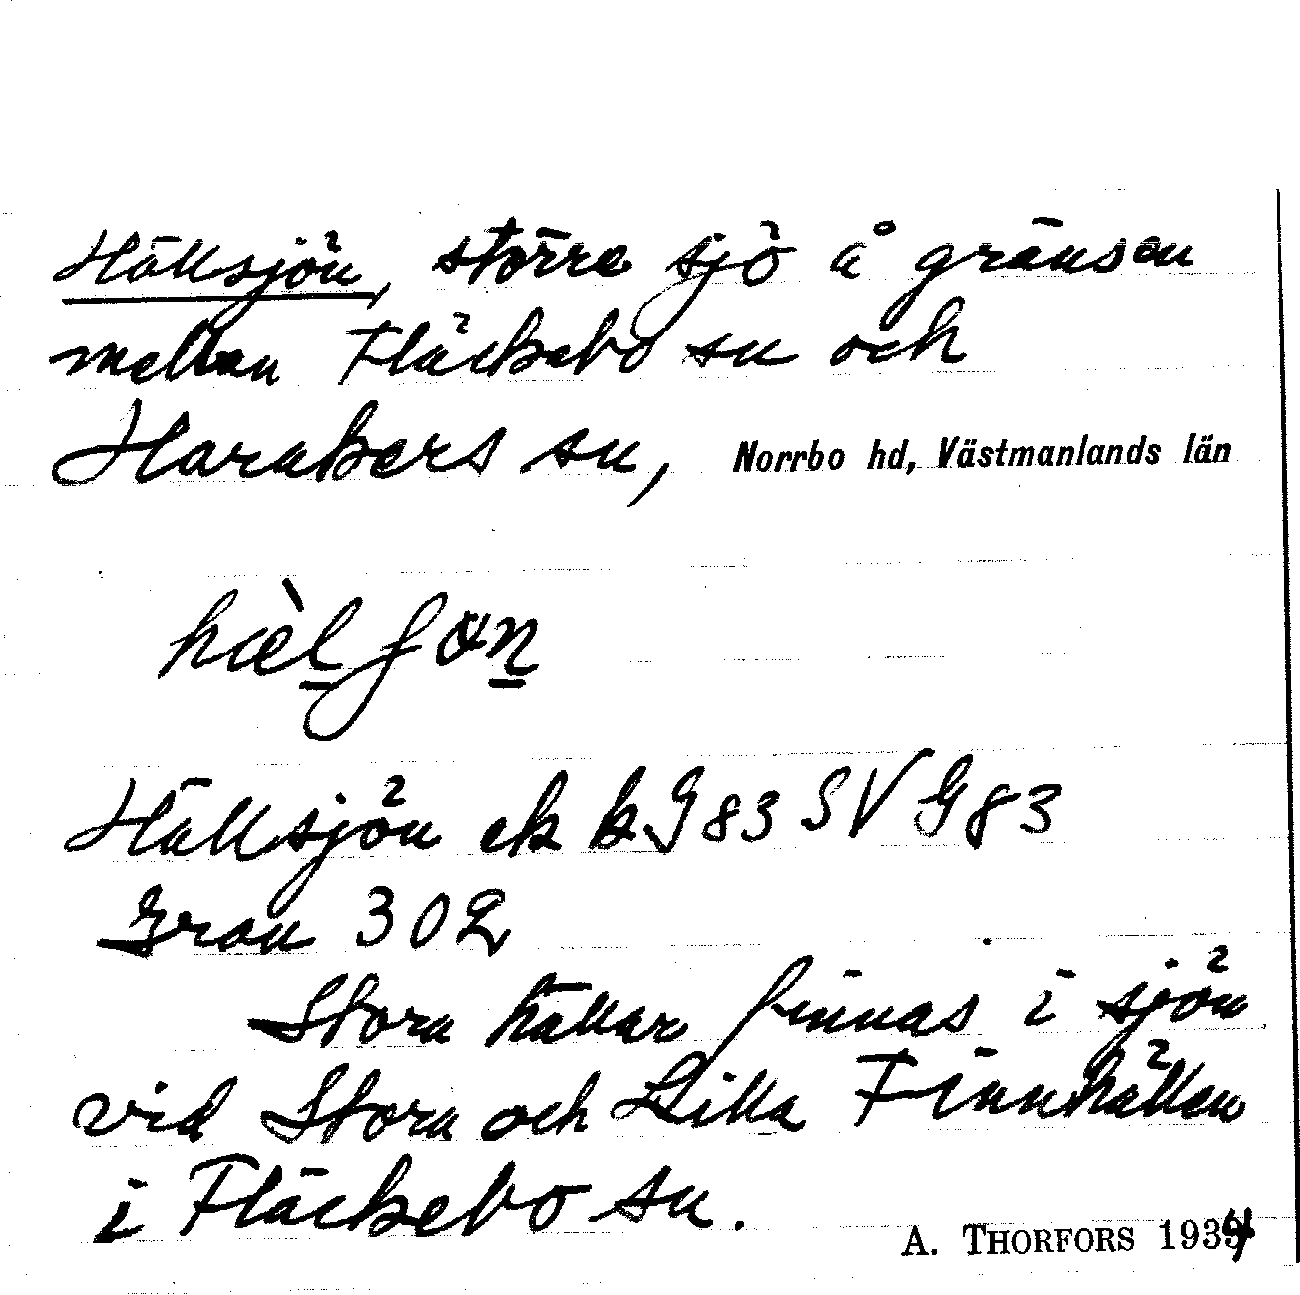 Hällsjön, större sjö å gränsen
mellan Fläckebo sn och
Harakers sn, Norrbo hd, Västmanlands län
hæ̀lʃɷn
Hällsjön ek kG83 SV G83
Gran 302
Stora hällar finnas i sjön
vid Stora och Lilla Finnhällen
i Fläckebo sn.
A. THORFORS 1934